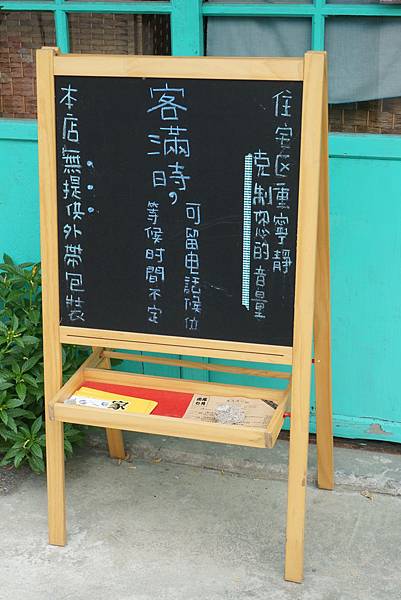 住宅区重寧靜
克制您的音量
客滿時，
可留电話候位
等候時間不定
本店無提供外帶包裝
家